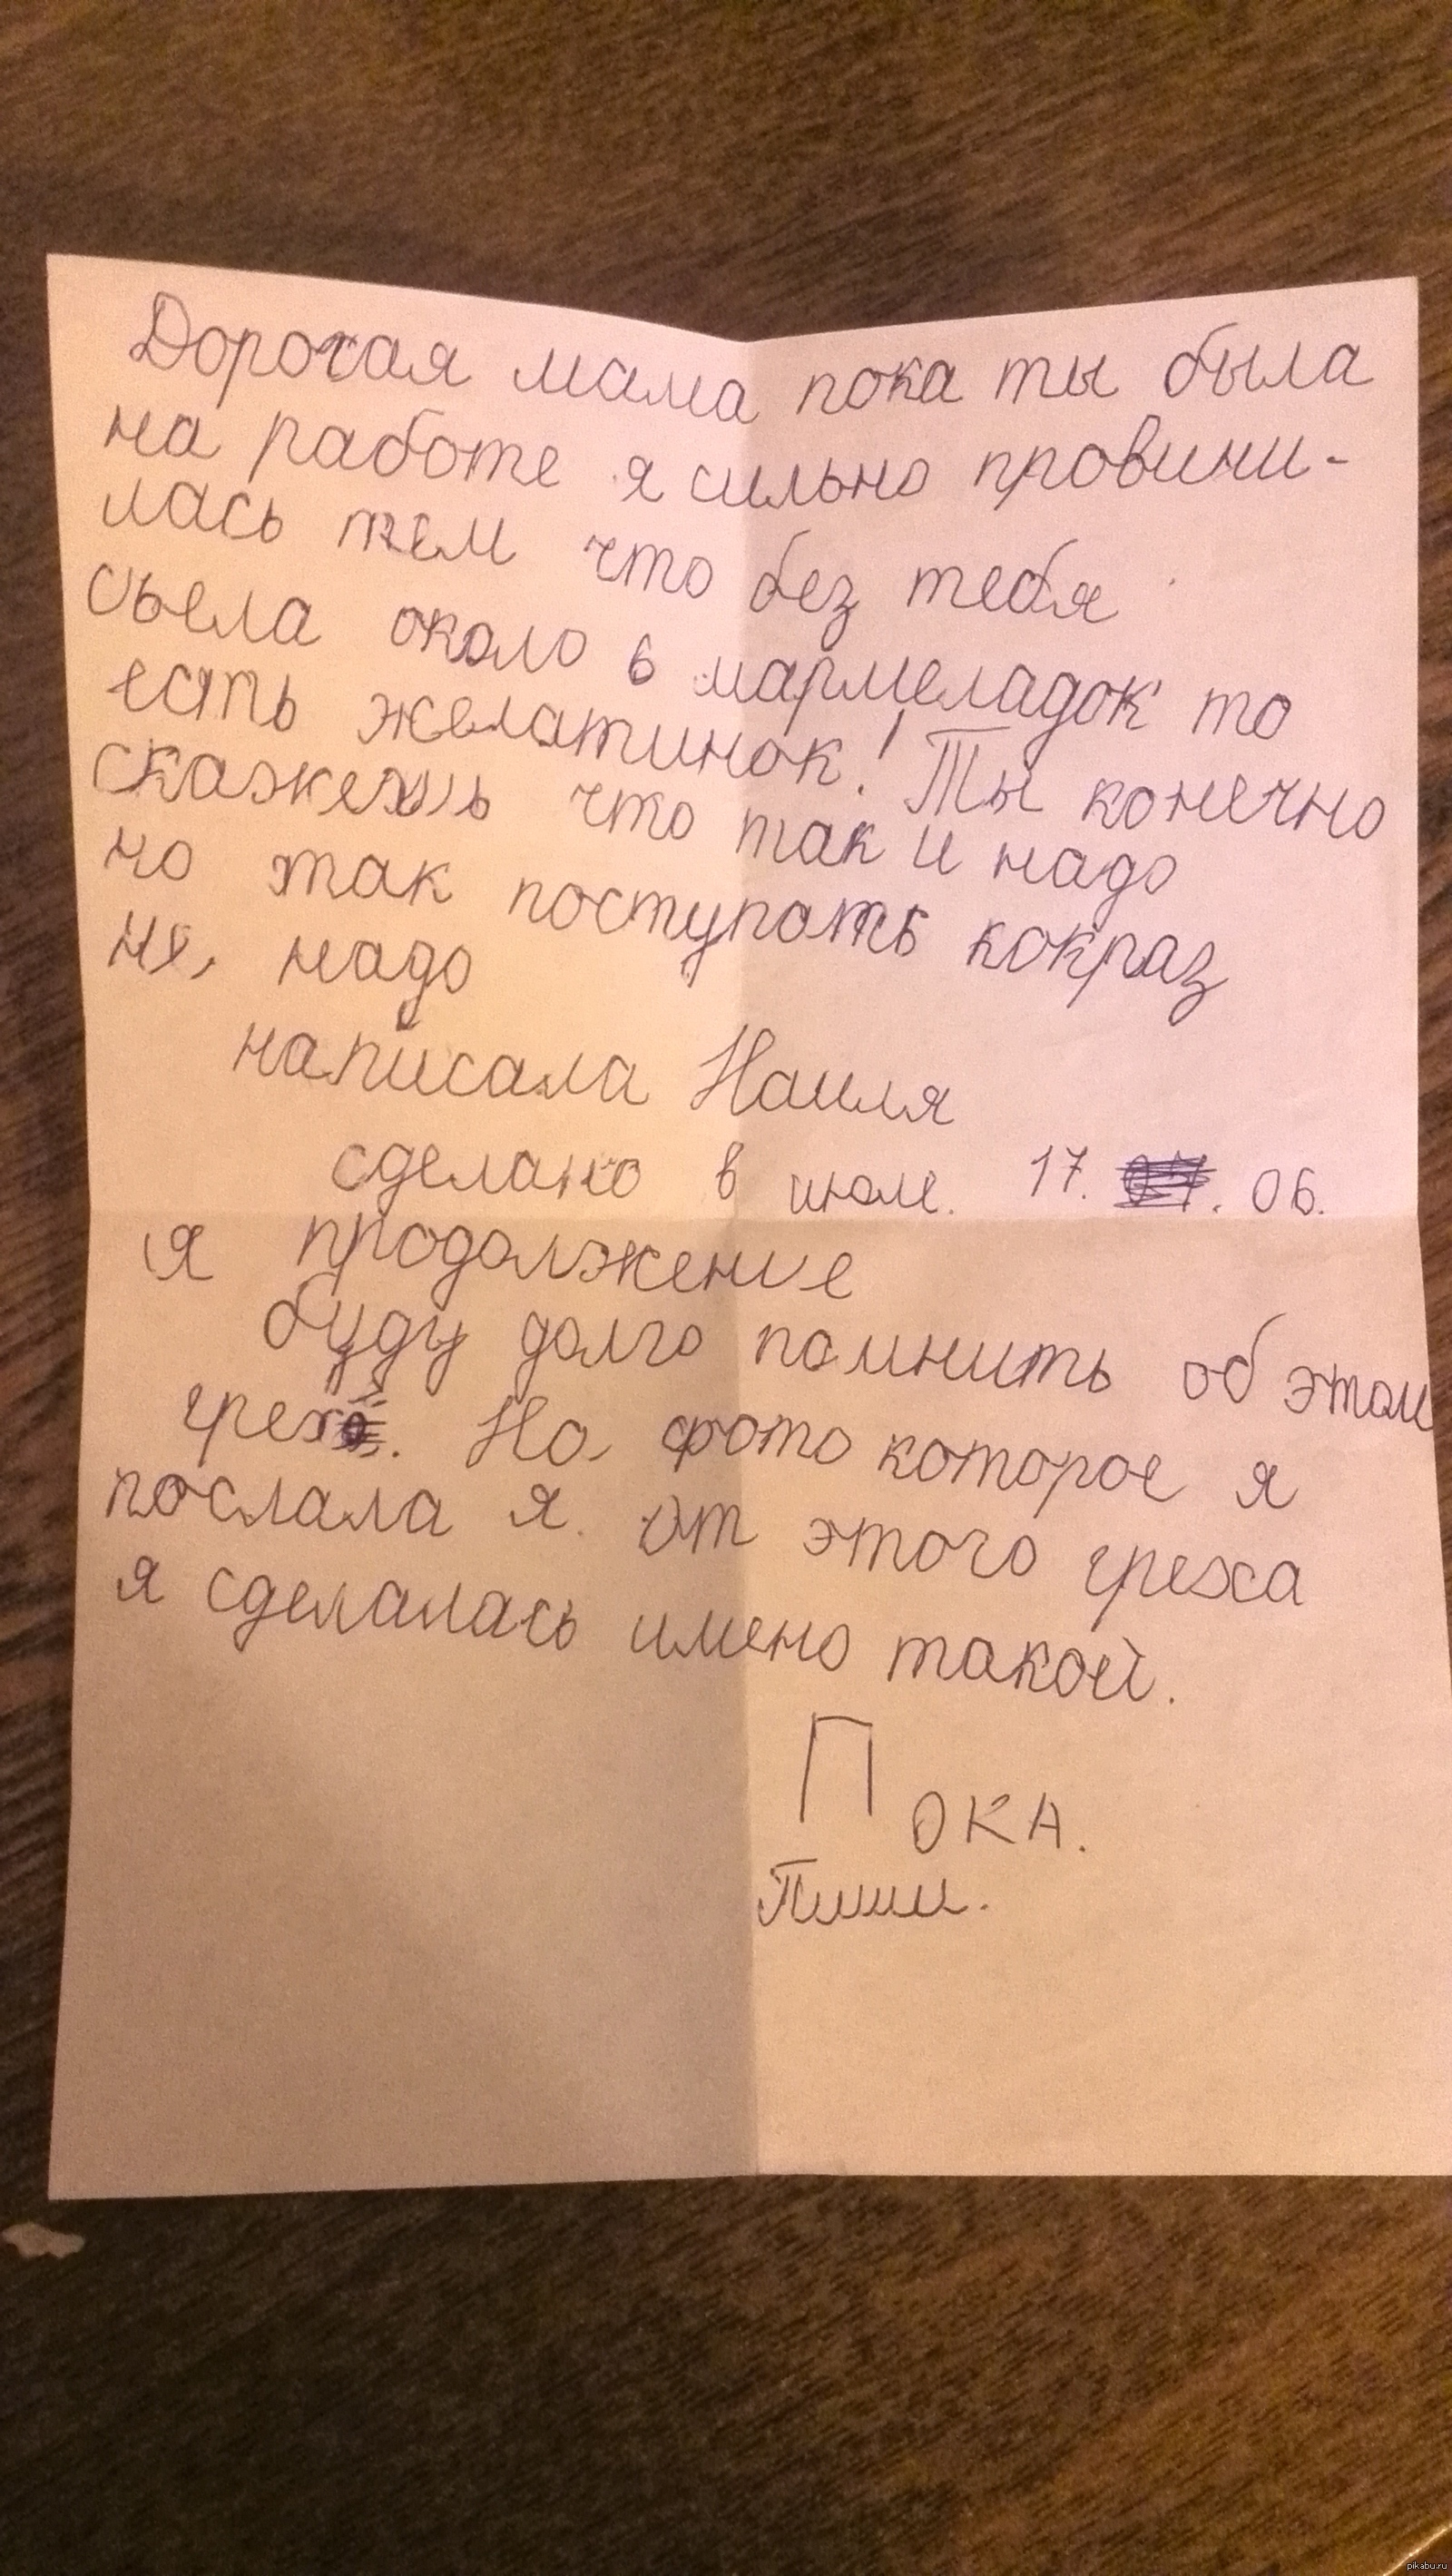 Дорогая мама пока ты была
на работе я сильно провини-
лась тем что без тебя
сьела около 6 мармеладок то
есть желатинок! Ты конечно
скажешь что так и надо
но так поступать кокраз
не, надо
написала Наиля
сделано в июле. 17. 06.
я продолжение
буду долго помнить об этом
грех. На фото которое я
послала я. От этого греха
я сделалась имено такой.
ПОКА.
Пиши.
pikabu.ru